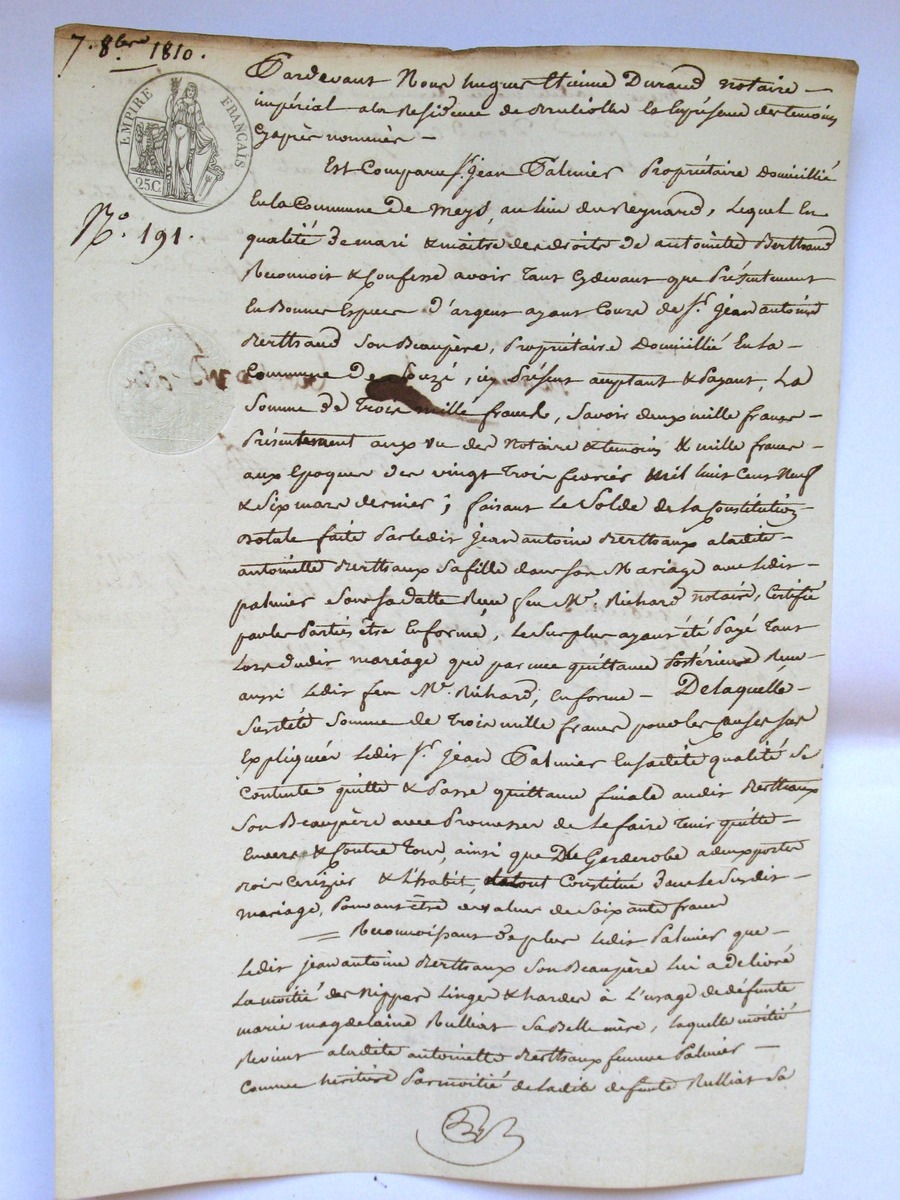 7. 8bre 1810.
EMPIRE FRANÇAIS
25C.
N.o 191.
Pardevant Nous hugues Etienne Durand notaire
impérial a la Résidence de Brulliolle la Exprésence des temoins
Cyaprès nommés
Est Comparu Sr. jean Palmier Propriétaire Domicillié
En la Commune de Meys, au lieu du Reynard, Lequel En
qualité de mari & maitre des droits de antoinette Berthaud
Reconnoit & Confesse avoir tant Cydevant que Présentement
En Bonnes Espèces d'argent ayant Cours de Sr. jean antoine
Berthaud Son Beaupère, Propriétaire Domicillié En la
Commune de Souzé, icy Présent acceptant & Payant, La
Somme de Trois mille francs, Savoir deux mille francs
Présentement aux vu des Notaire & temoins & mille francs
aux Epoques des vingt Trois fevrier mil huit Cent Neuf
& Six mars dernier; faisant Le Solde de La Constitution
dotale faite Par ledit jean antoine Berthaux a ladite
antoinette Berthaux Sa fille dans Son Mariage avec Ledit
palmier Sous Sa datte Reçu feu Me. Richard notaire, Certifié
par les Parties être En forme, Le Surplus ayant été Payé Tant
Lors dudit mariage que par une quittance Postérieure Reçue
aussi Ledit feu Me. Richard, En forme — De laquelle
Susdite Somme de Trois mille francs pour les Causes Sus
Expliquées Ledit Sr. jean Palmier En Sadite qualité Se
Contente quitte & Passe quittance finale audit Berthaux
Son Beaupère avec Promesses de Le faire Tenir quitte
Envers & Contre Tous, ainsi que De Garderobe a deux portes
Bois Cerizier & L'habit, Constitué dans Le Susdit
mariage, Pouvant être de valeur de Soixante francs
= Reconnoissant de plus Ledit Palmier que
Ledit jean antoine Berthaux Son Beaupère Lui a délivré
La moitié des Nippes Linges & hardes à L'usage de défunte
marie magdelaine Rulliat Sa Belle mère, laquelle moitié
Revient a ladite antoinette Berthaux femme Palmier
Comme héritière Par moitié de Ladite defunte Rulliat Sa